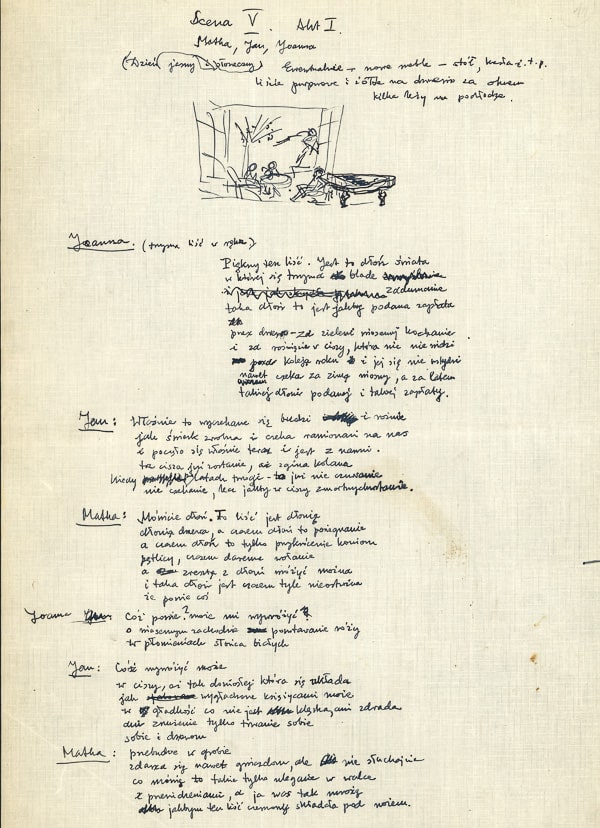 Scena V. Akt I.
Matka, Jan, Joanna
(Dzień jasny i słoneczny) Ewentualnie - nowe meble - stół, i.t.p.
liście purpurowe i żółte na drzewie za oknem
kilka leży na podłodze.
Joanna. (trzyma liść w ręku)
Piękny ten liść. Jest to dłoń świata
w której się trzyma blade
zadumanie
taka dłoń to jest jakby podana zapłata
przez drzewo - za zieleń wiosennej
i za rośnięcie w ciszy, która nic nie widzi
kolej roku i jej się nie wstydzi
nawet czeka za zimą wiosny, a za latem
takiej dłoni podanej i takiej zapłaty.
Jan: Właśnie to wyczekane się budzi i rośnie
jak zwolna i czeka ramionami na nas
i poczęło się właśnie teraz i jest z nami.
ta cisza już zostanie, aż zgina kolana
kiedy trwogi - to już nie czuwanie
nie czekanie, lecz jakby w ciszy zmartwychwstanie.
Matka: Mówicie dłoń. To liść jest dłonią
dłonią drzewa, a czasem dłoń to pożegnanie
a czasem dłoń to tylko przykrócenie koniom
pętlicy, czasem daremne wołanie
a zresztą z dłoni wróżyć można
i taka dłoń jest czasem tyle nieostrożna
że powie coś
Joanna Cóż powie? może mi wywróżyć?
o wiosennym zachodzie powstawanie róży
w płomieniach słońca białych
Jan: Cóż wywróżyć może
w ciszy, aż tak doniosłej która się układa
jak wygładzone księżycami morze
w gładkość co nie jest klęską, ani zdrada
dni znużenie tylko trwanie sobie
sobie i drzewom
Matka: przebudzę w grobie
zdarza się nawet gwiazdom, ale nie słuchajcie
co mówię to takie tylko uleganie w walce
z przewidzeniami, a ja was tak mrożę
jakbym ten liść czerwony składała pod nożem.